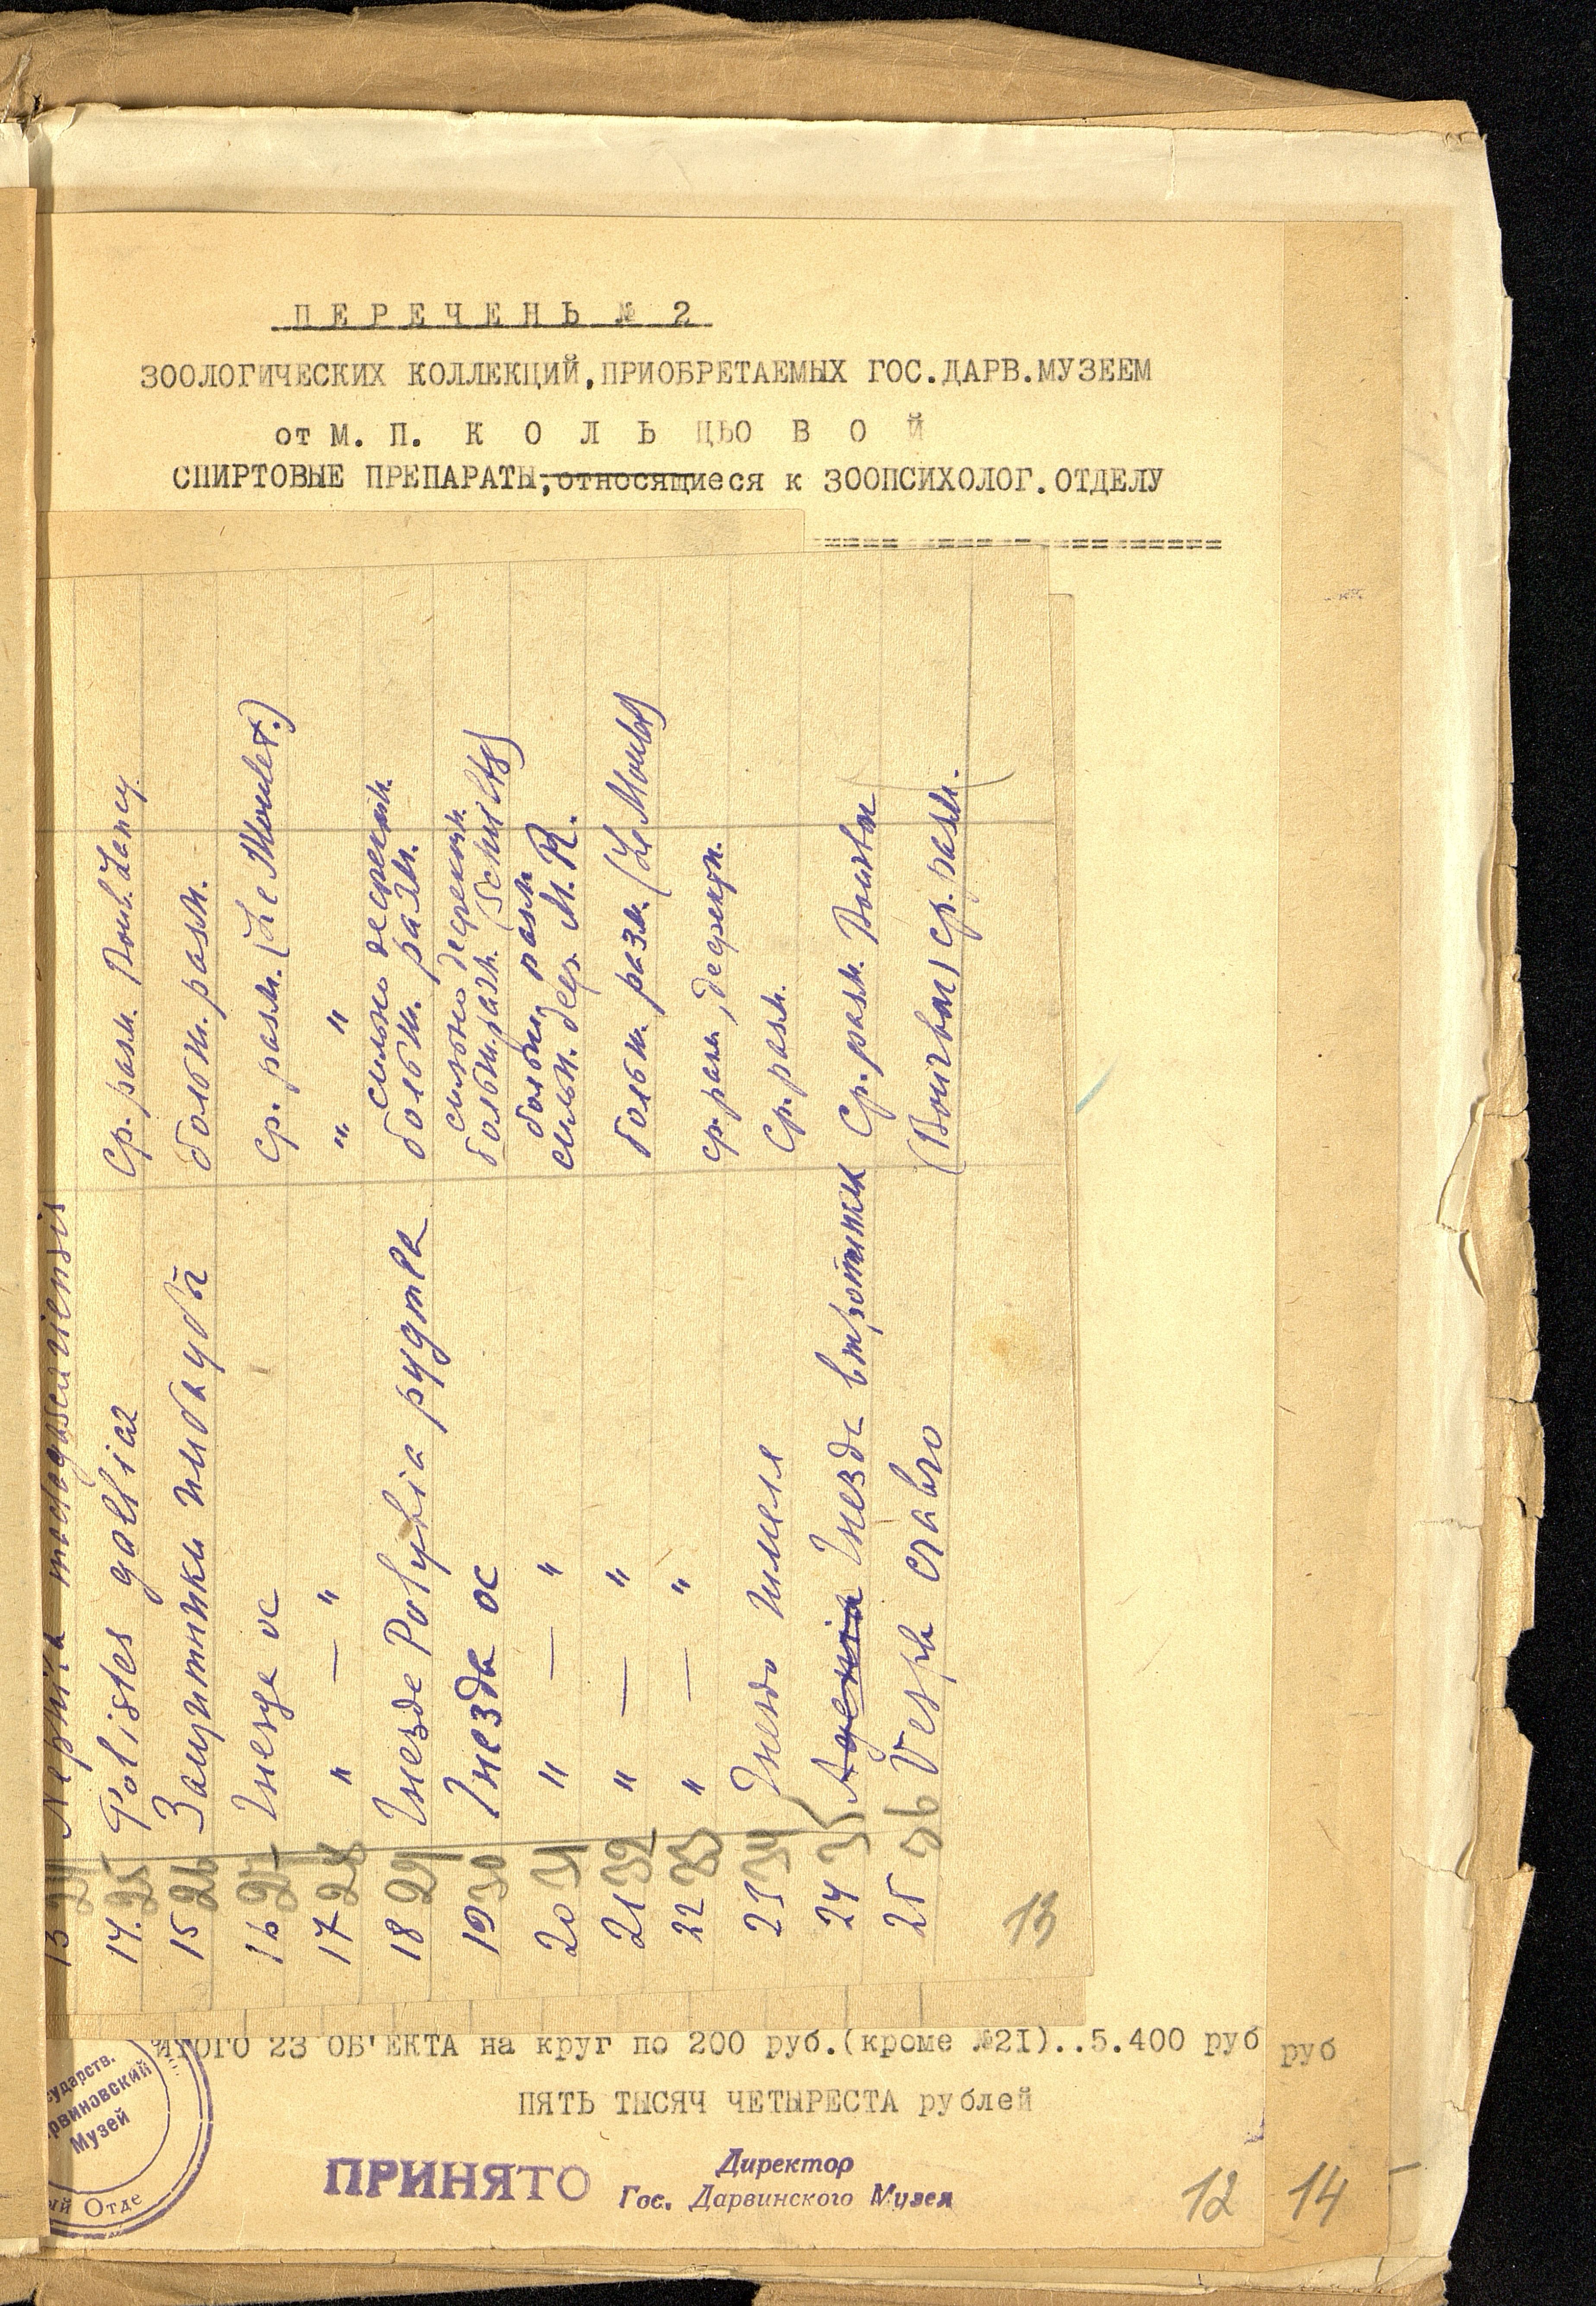 ПЕРЕЧЕНЬ № 2
ЗООЛОГИЧЕСКИХ КОЛЛЕКЦИЙ, ПРИОБРЕТАЕМЫХ ГОС. ДАРВ. МУЗЕЕМ
от М. П. КОЛЬЦЬОВОЙ
СПИРТОВЫЕ ПРЕПАРАТЫ, относящиеся к ЗООПСИХОЛОГ. ОТДЕЛУ
13 24 Nephila madagascariensis
14. 25 Polistes gallica Ср. разм.
15 26 Защитники больш. разм.
16 27 Гнезда ос Ср. разм. (Le Moult)
17 28 " — " " "
18 29 Гнездо Polybia pygmea сильно дефектн. больш. разм.
19 30 Гнезда ос сильно дефектн. больш. разм. (Schultz)
20 31 " — " больш. разм. сильн. деф. М. R.
21 32 " — " больш. разм. (Le Moult)
22 33 " — " ср. разм., дефектн.
23 34 Гнездо шмеля Ср. разм.
24 35 Гнезда Ср. разм.
25 36 Vespa crabro ср. разм.
13
ИТОГО 23 ОБ'ЕКТА на круг по 200 руб. (кроме №21)..5.400 руб
руб
ПЯТЬ ТЫСЯЧ ЧЕТЫРЕСТА рублей
сударств.
рвиновский
Музей
ый Отде
ПРИНЯТО
Директор
Гос. Дарвинского Музея
12
14